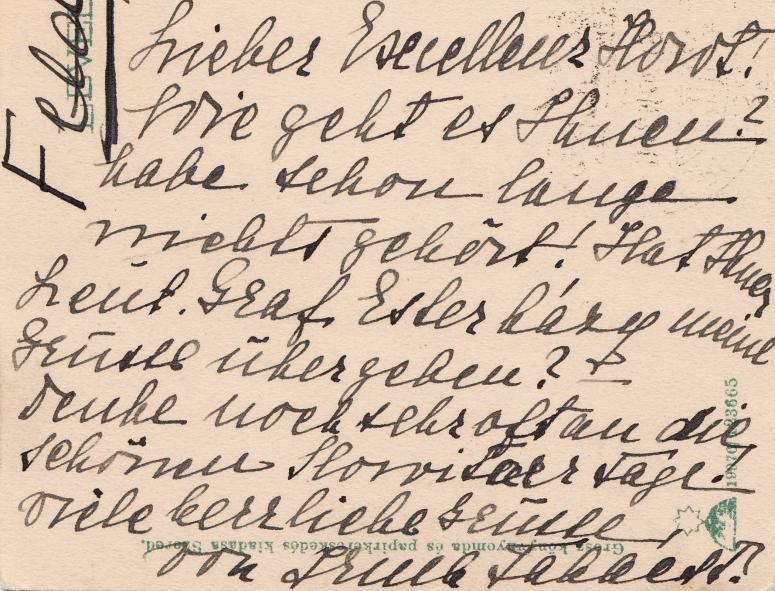 Lieber Excellenz Horst!
Wie geht es Ihnen?
habe schon lange
nichts gehört! Hat Ihnen
Leut. Graf Esterházy meine
Grüsse übergeben?
Denke noch sehr oft an die
schönen Tage!
viele herrliche Grüsse
von
Feld
LEVEL
Grosz könyvnyomda és papirkereskedés kiadása Szered.
23665